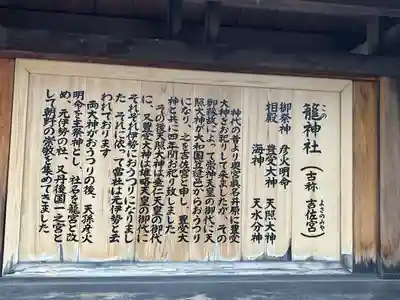 この
籠神社(古称 吉佐宮)
よさのみや
御祭神 彦火明命
相殿 豊受大神 天照大神
海神 天水分神
神代の昔より奥宮眞名井原に豊受
大神をお祀りして来ましたが、その
御縁故によって崇神天皇の御代に天
照大神が大和国笠縫邑からおうつり
になり、之を吉佐宮と申し、豊受大
神と共に四年間お祀り致しました
その後天照大神は垂仁天皇の御代
に、又豊受大神は雄略天皇の御代に
それぞれ伊勢にうつりになりまし
た それに依って當社は元伊勢と云
われております
両大神がおうつりの後、天孫彦火
明命を主祭神とし、社名を籠宮と改
め、元伊勢の社、又丹後国一之宮と
して朝野の崇敬を集めてきました